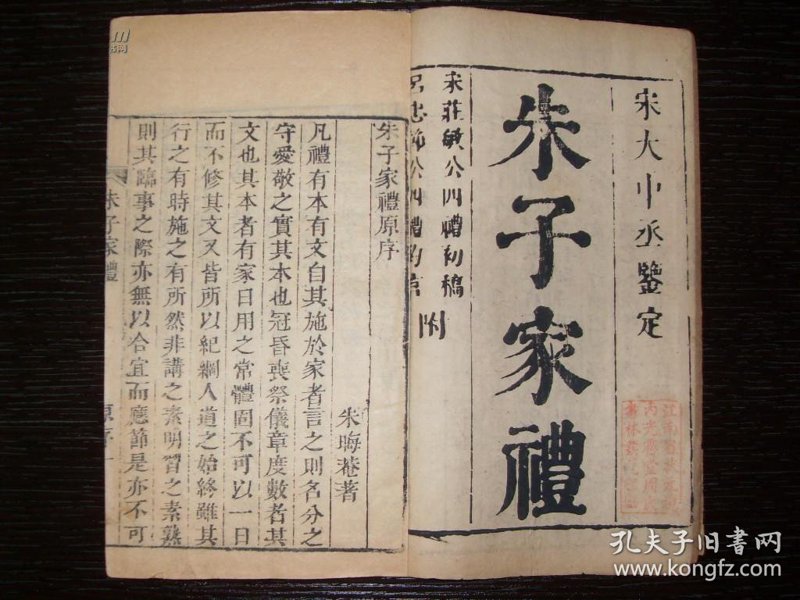 宋大中丞鑒定
朱子家禮
宋莊敏公四禮初稿
呂忠節公四禮約言
附
朱子家禮原序
朱晦菴著
凡禮有本有文自其施於家者言之則名分之
守愛敬之實其本也冠昏喪祭儀章度數者其
文也其本者有家日用之常體固不可以一日
而不修其文又皆所以紀綱人道之始終雖其
行之有時施之有所然非講之素明習之素熟
則其臨事之際亦無以合宜而應節是亦不可
朱子家禮
原序
一
孔夫子旧书网
www.kongfz.com